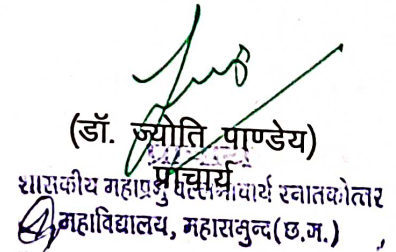 (डॉ. ज्योति पाण्डेय)
प्राचार्य
शासकीय महाप्रभु वल्लभाचार्य स्नातकोत्तर
महाविद्यालय, महासमुन्द (छ.ग.)